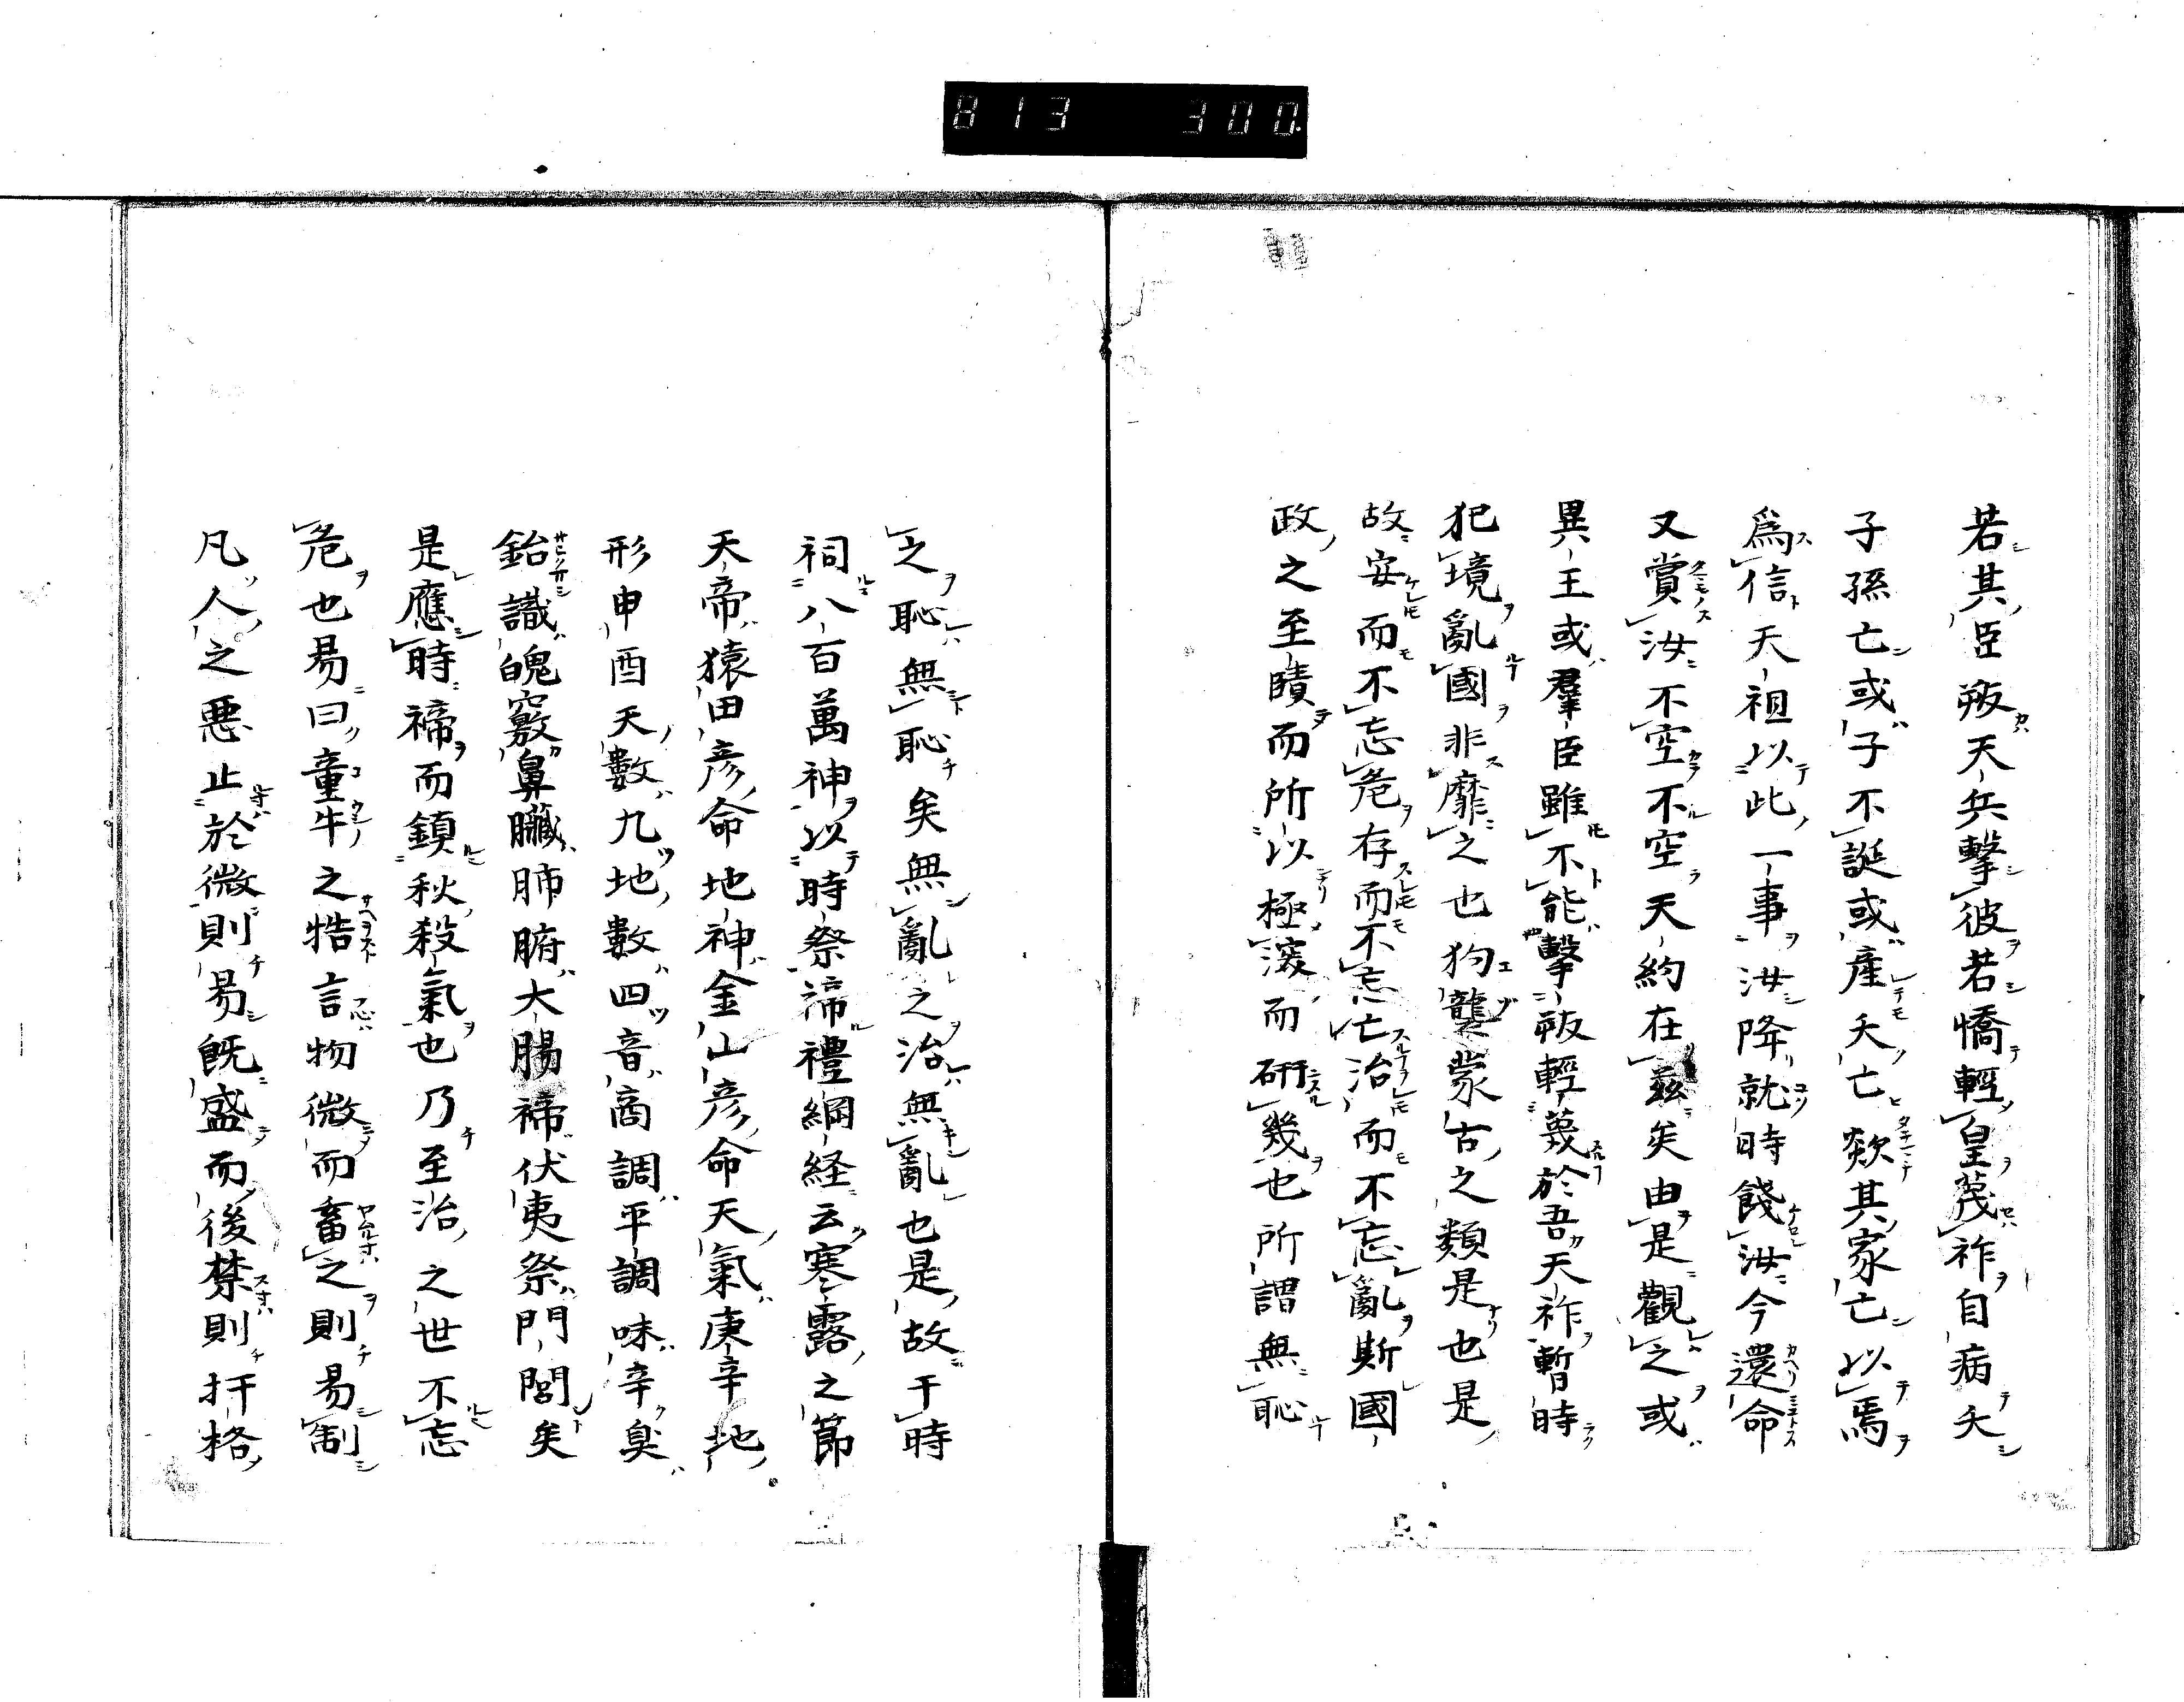 813 300
若其臣叛天兵擊彼若憍輕皇蔑祚自病夭
子孫亡或子不誕或産夭亡欻其家亡以焉
爲信天祖以此一事汝降就時餞汝今還命
又賞汝不空不空天約在茲矣由是觀之或
異王或羣臣雖不能擊叛輕蔑於吾天祚暫時
犯境亂國非靡之也狗龍蒙古之類是也是
故安而不忘危存而不忘亡治而不忘亂斯國
政之至賾而所以極深而研幾也所謂無恥
之恥無恥矣無亂之治無亂也是故于時
祠八百萬神以時祭渧禮綱経云寒露之節
天帝猿田彦命地神金山彦命天氣庚辛地
形申酉天數九地數四音商調平調味辛臭
鉛識魄竅鼻臟肺腑大腸禘伏夷祭門閭矣
是應時禘而鎮秋殺氣也乃至治之世不忘
危也易曰童牛之牿言物微而畜之則易制
凡人之悪止於微則易既盛而後禁則扞格